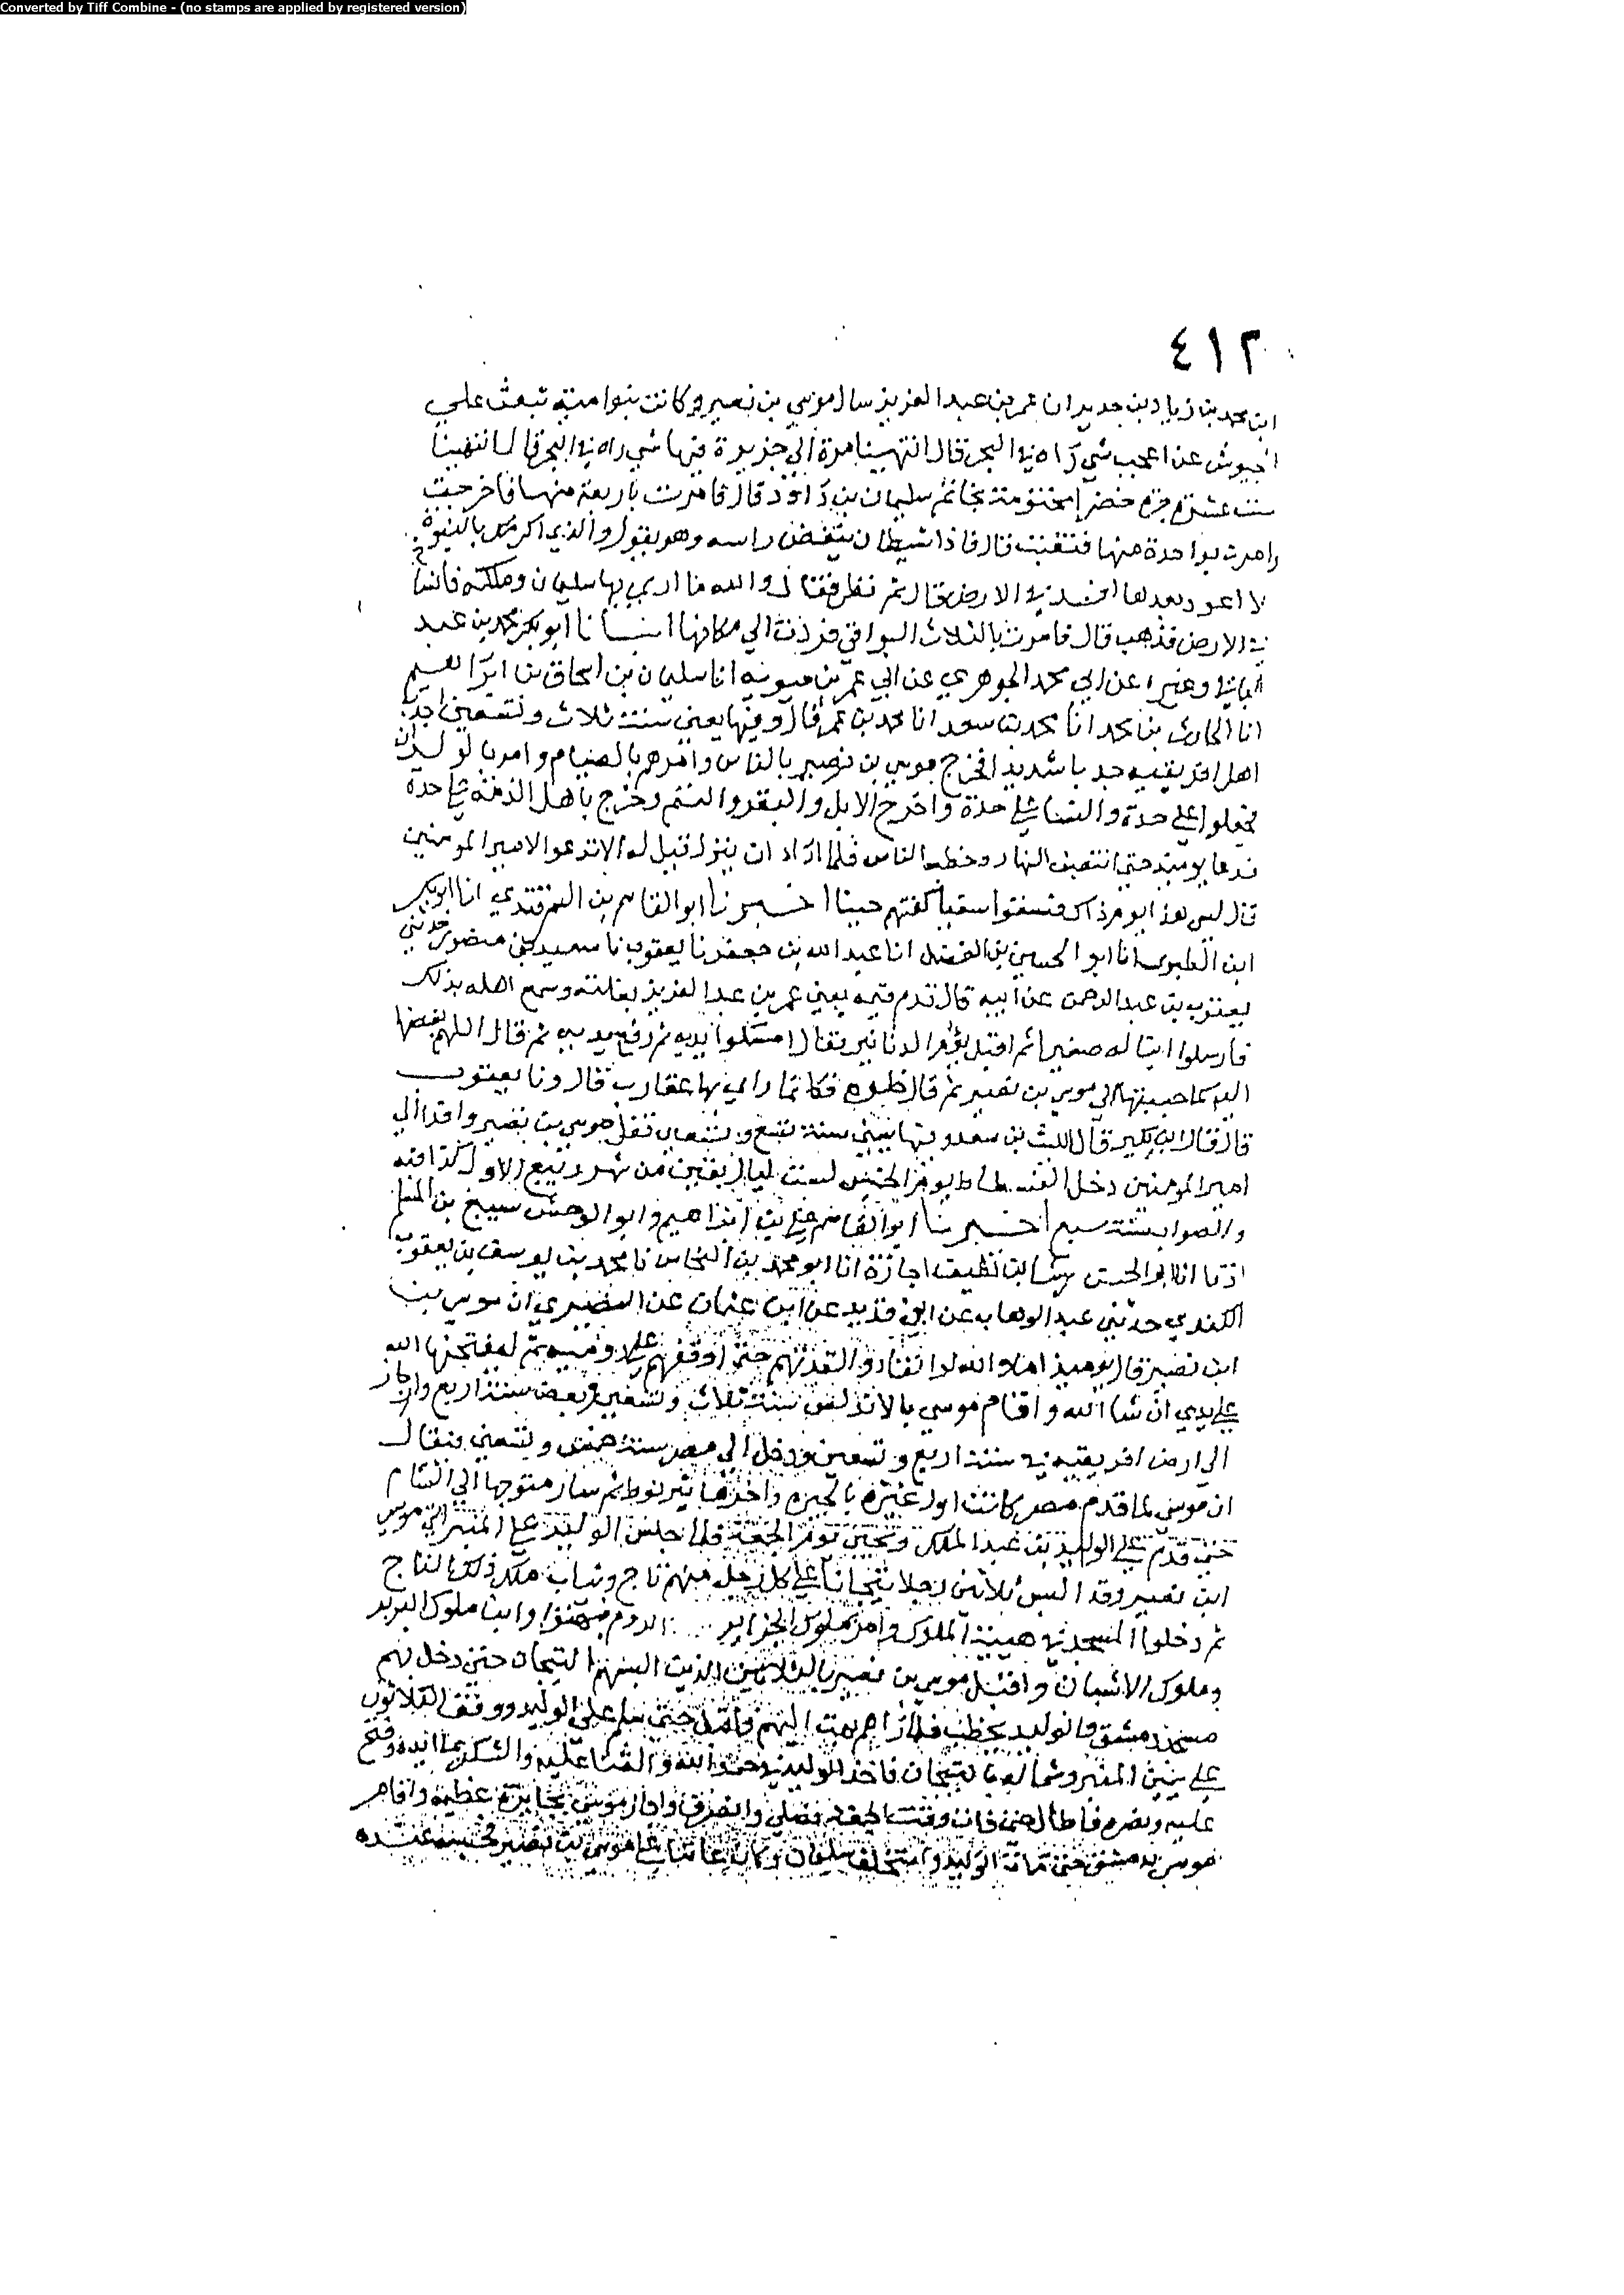 Converted by Tiff Combine - (no stamps are applied by registered version)
٤١٢
ابن محمد بن زياد بن جدير ان عمر بن عبد العزيز سال موسى بن نصير وكانت بنوا امية تبعث علي
الجيوش عن اعجب شي رآه في البحر فقال انتهينا مرة الي جزيرة فيها شي راه في البحر قال انتهينا
ستة عشرة جرة خضرا مختومة بخاتم سليمان بن داود قال فامرت باربعة منها فاخرجت
وامرت بواحدة منها فنقبت قال فاذا شيطان ينفض راسه وهو يقول والذي اكرمك بالنبوة
لا اعود بعدها افسد في الارض قال ثم نظر فقال والله ما اري بها سليمان وملكه فانساخ
في الارض فذهب قال فامرت بالثلاث البواقي فردت الي مكانها انبانا ابو بكر محمد بن عبد
الباقي وغيره عن ابي محمد الجوهري عن ابي عمر بن حيويه انا سليمان بن اسحاق بن ابراهيم
انا الحارث بن محمد انا محمد بن سعد انا محمد بن عمر قال وفيها يعني سنة ثلاث وتسعين اجدب
اهل افريقيه جدبا شديدا فخرج موسى بن نصير بالناس وامرهم بالصيام وامر بالولدان
فجعلوا علي حدة والنسا علي حدة واخرج الابل والبقر والغنم وخرج باهل الذمة علي حدة
فدعا يوميذ حتي انتصف النهار وخطب الناس فلما اراد ان ينزل قيل له الا تدعوا لامير المومنين
قال ليس هذا يوم ذاك فسقوا سقيا كفتهم حينا اخبرنا ابو القاسم بن السمرقندي انا ابو بكر
ابن الطبري انا ابو الحسين بن الفضل انا عبد الله بن جعفر نا يعقوب نا سعيد بن منصور حدثني
يعقوب بن عبد الرحمن عن ابيه قال قدم قيمه يعني عمر بن عبد العزيز بغلته وسمع اهله بذلك
فارسلوا ابنا له صغيرا ثم اقبل الدنانير فقال امسكوا يديه ثم رفع يديه ثم قال اللهم بغضها
اليه كما حببتها الي موسى بن نصير ثم قال خلوه فكانما راي بها عقارب قال ونا يعقوب
قال قال ابن بكير قال الليث بن سعد وفيها يعني سنة تسع وتسعين قفل موسى بن نصير وافدا الي
امير المومنين دخل الفسطاط يوم الخميس لست ليال بقين من شهر ربيع الاول كذا فيه
والصواب سنة سبع اخبرنا ابو القاسم علي بن ابراهيم وابو الوحش سبيع بن المسلم
اذنا انا ابو الحسن رشا بن نظيف اجازة انا ابو محمد بن النحاس نا محمد بن يوسف بن يعقوب
الكندي حدثني عبد الوهاب عن ابن قديد عن ابن عثمان عن النصيري ان موسى بن
ابن نصير قال يوميذ اما والله لو انقادوا لقدتهم حتي اوقفهم علي روميه ثم ليفتحنها الله
علي يدي ان شا الله واقام موسى بالاندلس سنة ثلاث وتسعين وبعض سنة اربع واجاز
الي ارض افريقيه في سنة اربع وتسعين ودخل الي مصر سنة خمس وتسعين ويقال
ان موسى لما قدم مصر كانت اول عيره بالجيزه واخرها بتربوط ثم سار متوجها الي الشام
حتي قدم علي الوليد بن عبد الملك وتحين يوم الجمعة فلما جلس الوليد علي المنبر اتي موسى
ابن نصير وقد البس ثلاثين رجلا تيجانا علي كل رجل منهم تاج وثياب ملك ذلك التاج
ثم دخلوا المسجد في هيئة الملوك وامر بملوك الجزاير الروم فهيئوا وابنا ملوك البربر
وملوك الاشبان واقبل موسى بن نصير بالثلاثين الذين البسهم التيجان حتي دخل بهم
مسجد دمشق والوليد يخطب فلما راهم بهت اليهم واقبل حتي سلم علي الوليد ووقف الثلاثون
علي يمين المنبر وشماله بالتيجان فاخذ الوليد في حمد الله والثنا عليه والشكر بما ايده وفتح
عليه ونصره فاطال حتي فات وقت الجمعة فصلي وانصرف واجاز موسى بجايزة عظيمة واقام
موسى بدمشق حتي مات الوليد واستخلف سليمان وكان عاتبا علي موسى بن نصير فحبسه عنده